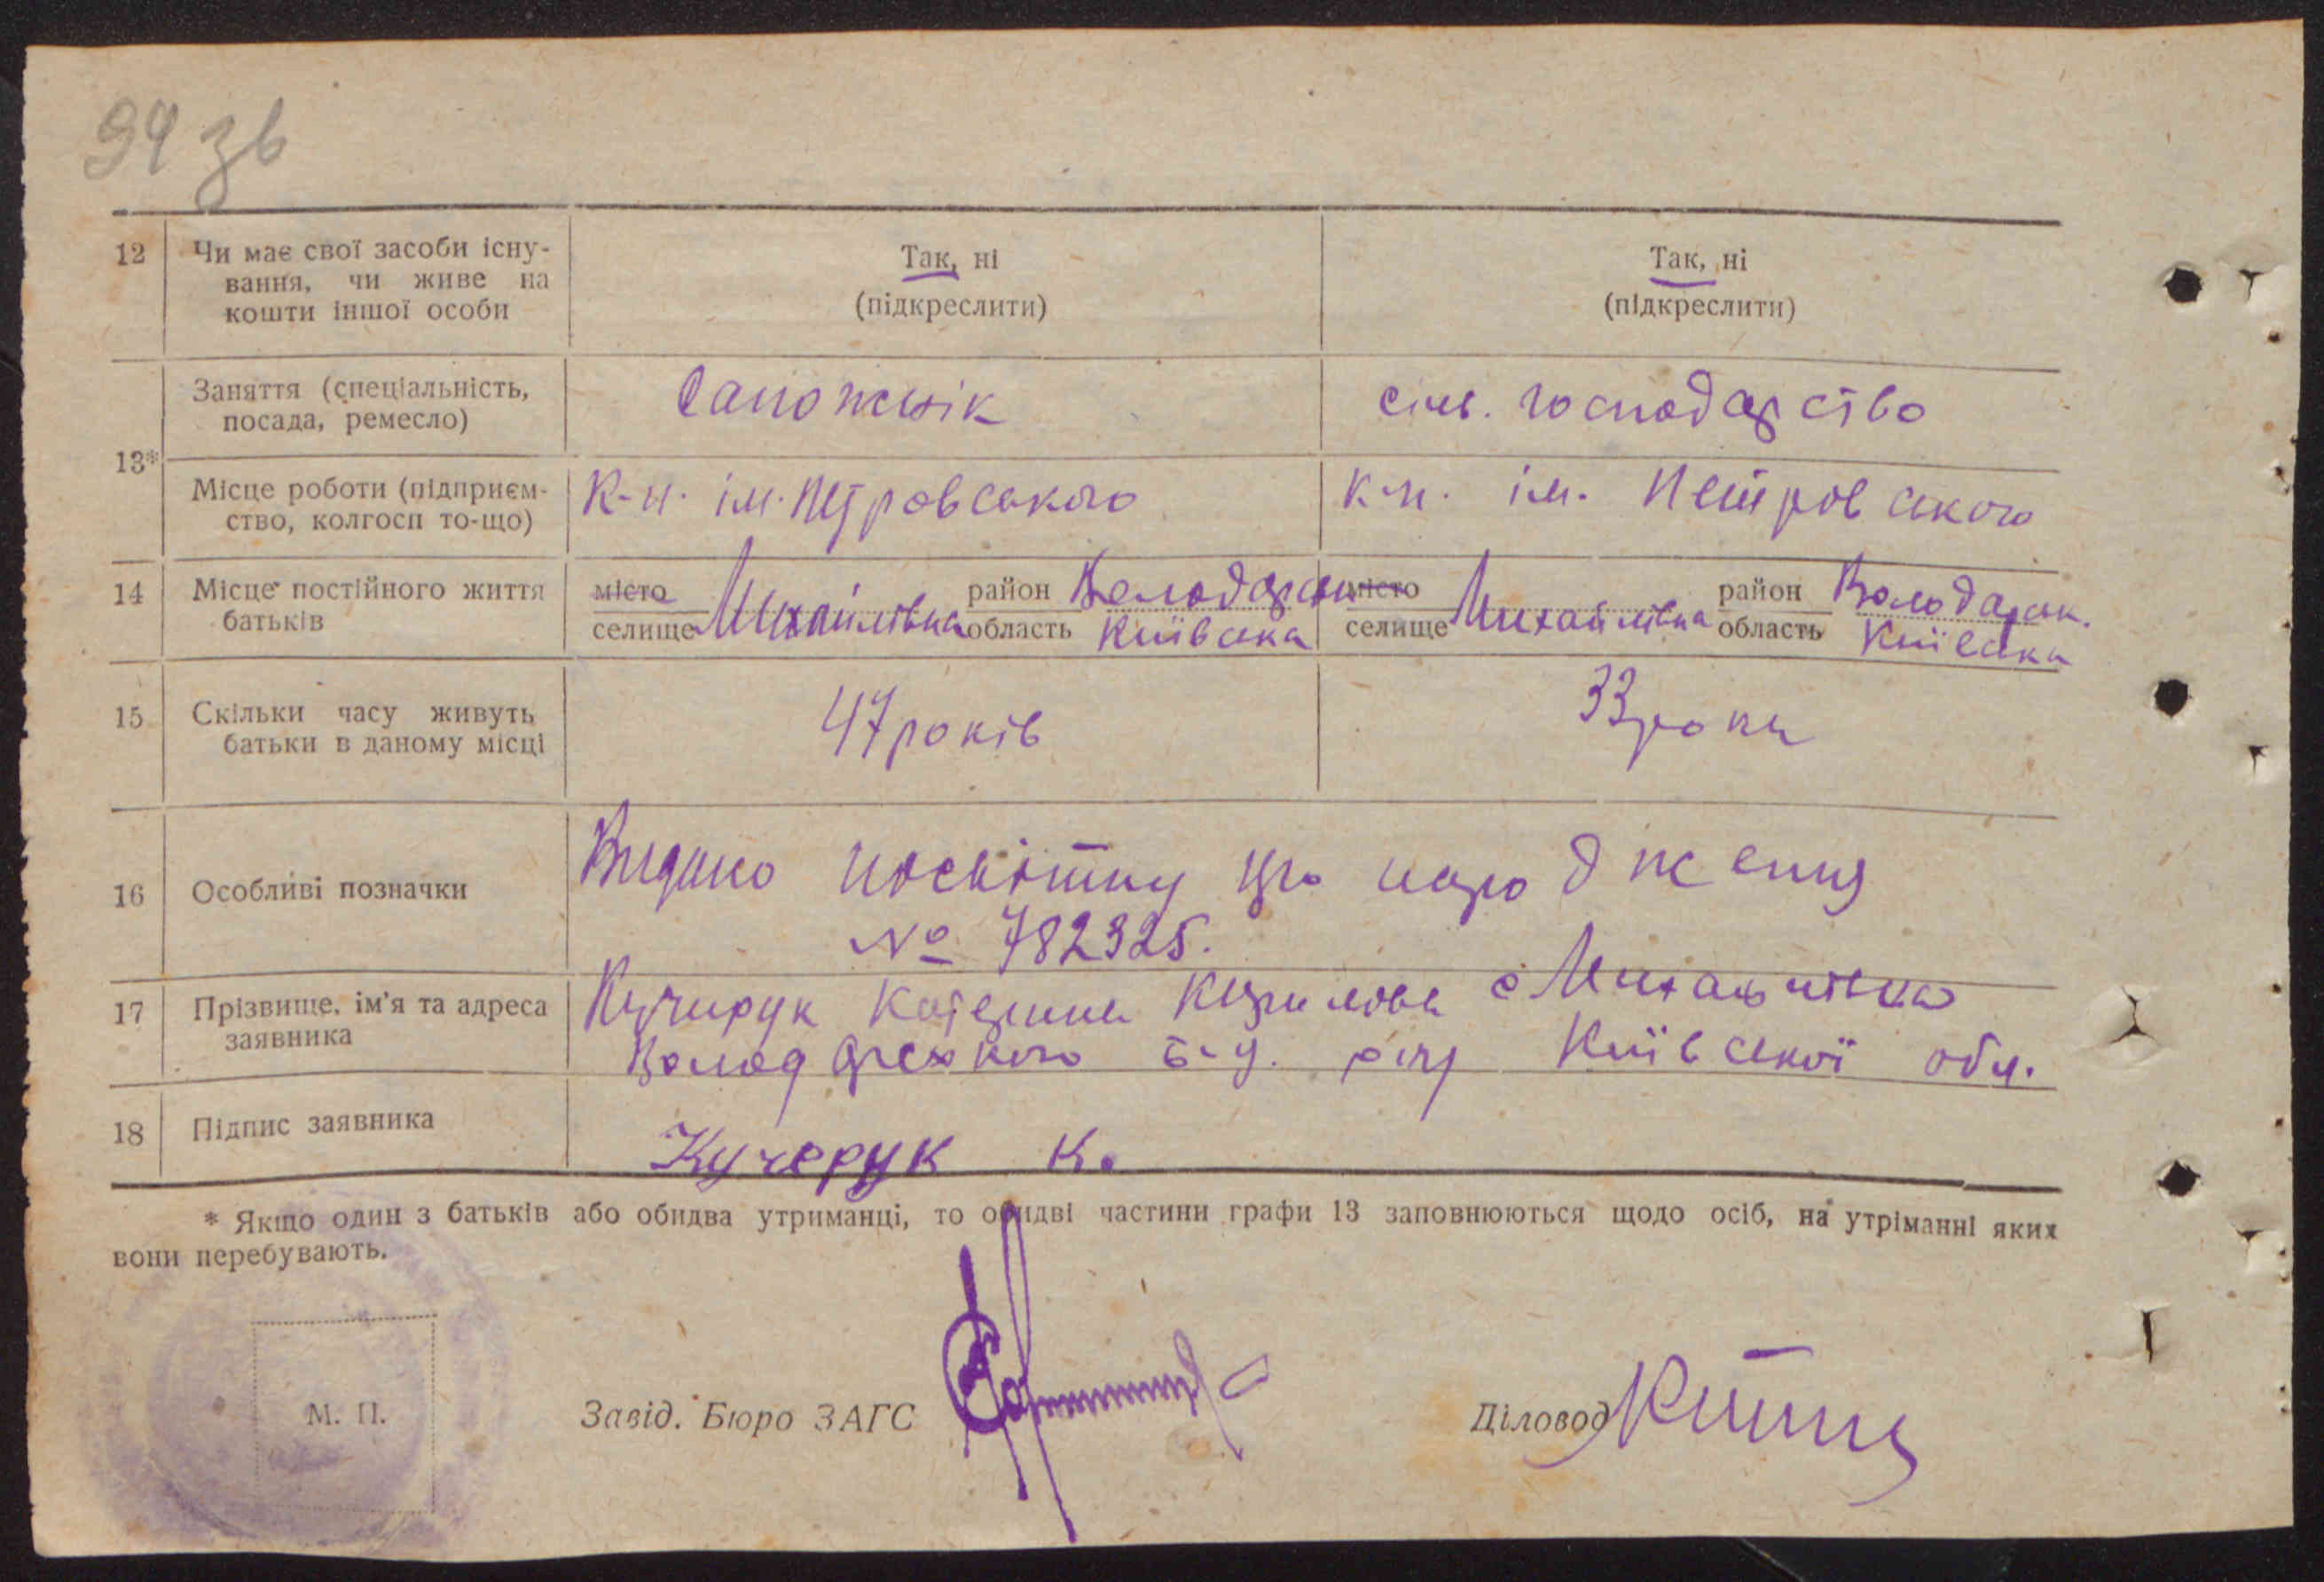 94 зв
12 Чи має свої засоби існу- Так, ні Так, ні
вання, чи живе на (підкреслити) (підкреслити)
кошти іншої особи
13*
Заняття (спеціальність, Сапожнік сіль. господарство
посада, ремесло)
Місце роботи (підприєм- К-п. ім. Петровського К-п. ім. Петровського
ство, колгосп то-що)
14 Місце постійного життя місто Михайлівка район Володарськ місто Михайлівка район Володарськ.
батьків селище область Київська селище область Київська
15 Скільки часу живуть 47 років 33 роки
батьки в даному місці
16 Особливі позначки Видано посвітку про народження
№ 782325.
17 Прізвище, ім'я та адреса Кучирук Катерина Кирилова с Михайлівка
заявника Володарського р-ну Київської обл.
18 Підпис заявника Кучерук К.
* Якщо один з батьків або обидва утриманці, то обидві частини графи 13 заповнюються щодо осіб, на утріманні яких
вони перебувають.
М. П. Завід. Бюро ЗАГС Діловод